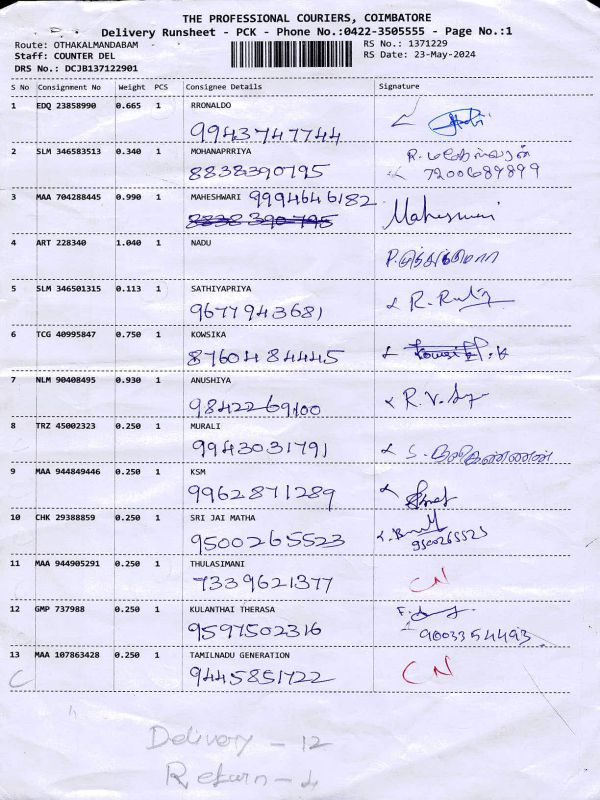 THE PROFESSIONAL COURIERS, COIMBATORE
Delivery Runsheet - PCK - Phone No.:0422-3505555 - Page No.:1
Route: OTHAKALMANDABAM RS No.: 1371229
Staff: COUNTER DEL RS Date: 23-May-2024
DRS No.: DCJB137122901
S No Consignment No Weight PCS Consignee Details Signature
1 EDQ 23858990 0.665 1 RRONALDO
9943747744
2 SLM 346583513 0.340 1 MOHANAPRRIYA R.
8838390795 7200689899
3 MAA 704288445 0.990 1 MAHESHWARI 9994646182 Maheswari
8838390795
4 ART 228340 1.040 1 NADU P.
5 SLM 346501315 0.113 1 SATHIYAPRIYA
9677943681 R.
6 TCG 40995847 0.750 1 KOWSIKA
8760484445
7 NLM 90408495 0.930 1 ANUSHIYA
9842269100 R.V.
8 TRZ 45002323 0.250 1 MURALI
9943031791 S.
9 MAA 944849446 0.250 1 KSM
9962871289
10 CHK 29388859 0.250 1 SRI JAI MATHA
9500265523 9500265523
11 MAA 944905291 0.250 1 THULASIMANI
7339621377 CN
12 GMP 737988 0.250 1 KULANTHAI THERASA
9597502316 9003354493
13 MAA 107863428 0.250 1 TAMILNADU GENERATION
C 9445851722 CN
Delivery - 12
Return - 1